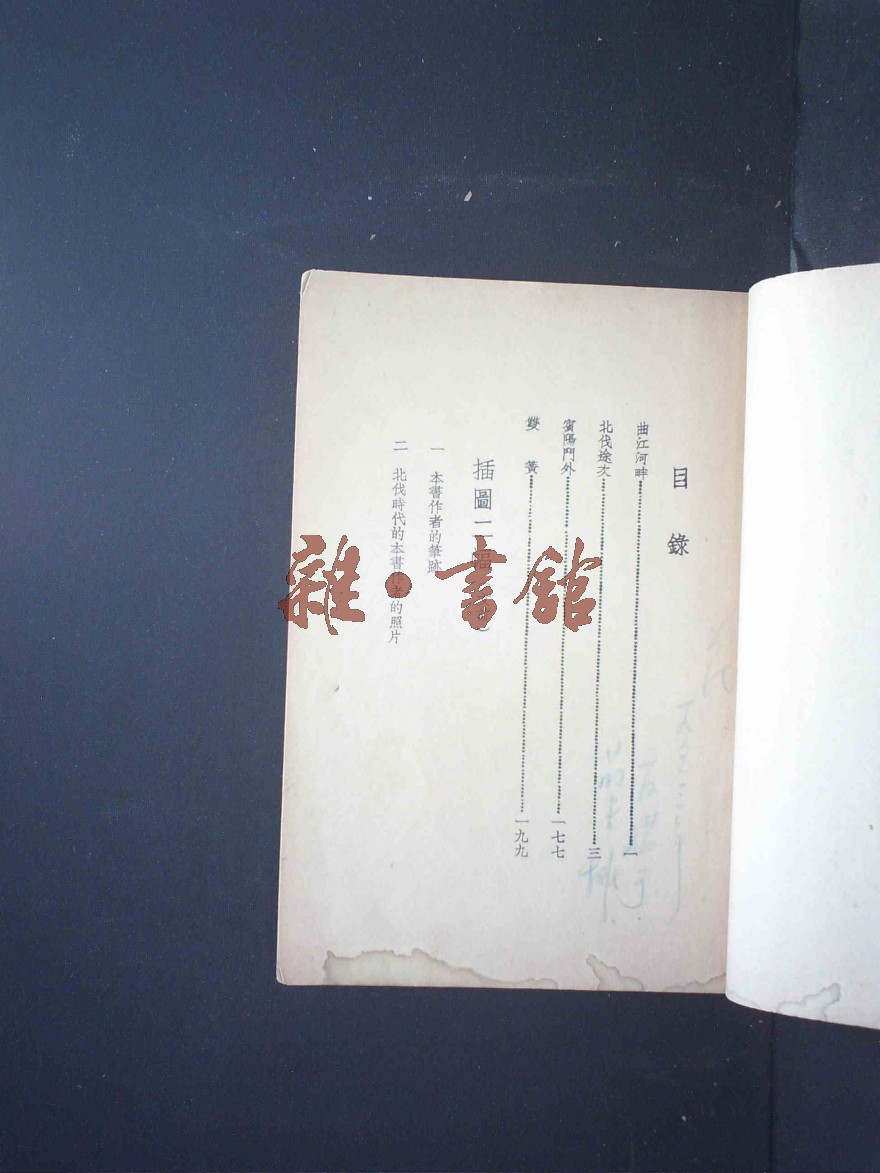 目錄
曲江河畔……一
北伐途次……三
賓陽門外……一七七
雙簧……一九九
插圖二幅
一 本書作者的筆跡
二 北伐時代的本書作者的照片
雜·書館